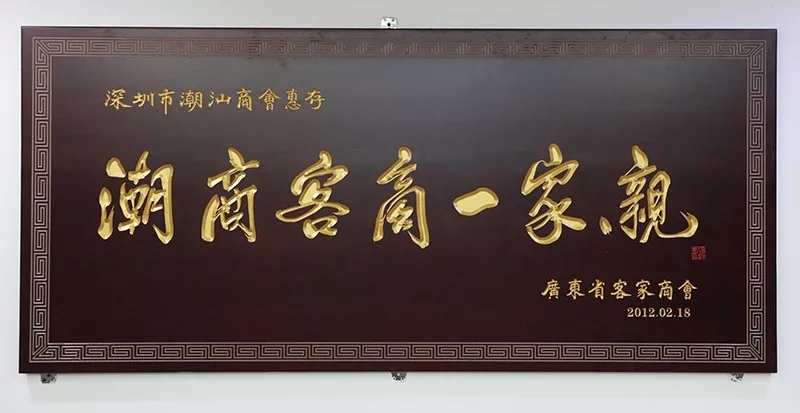 深圳市潮汕商會惠存
潮商客商一家親
廣東省客家商會
2012.02.18